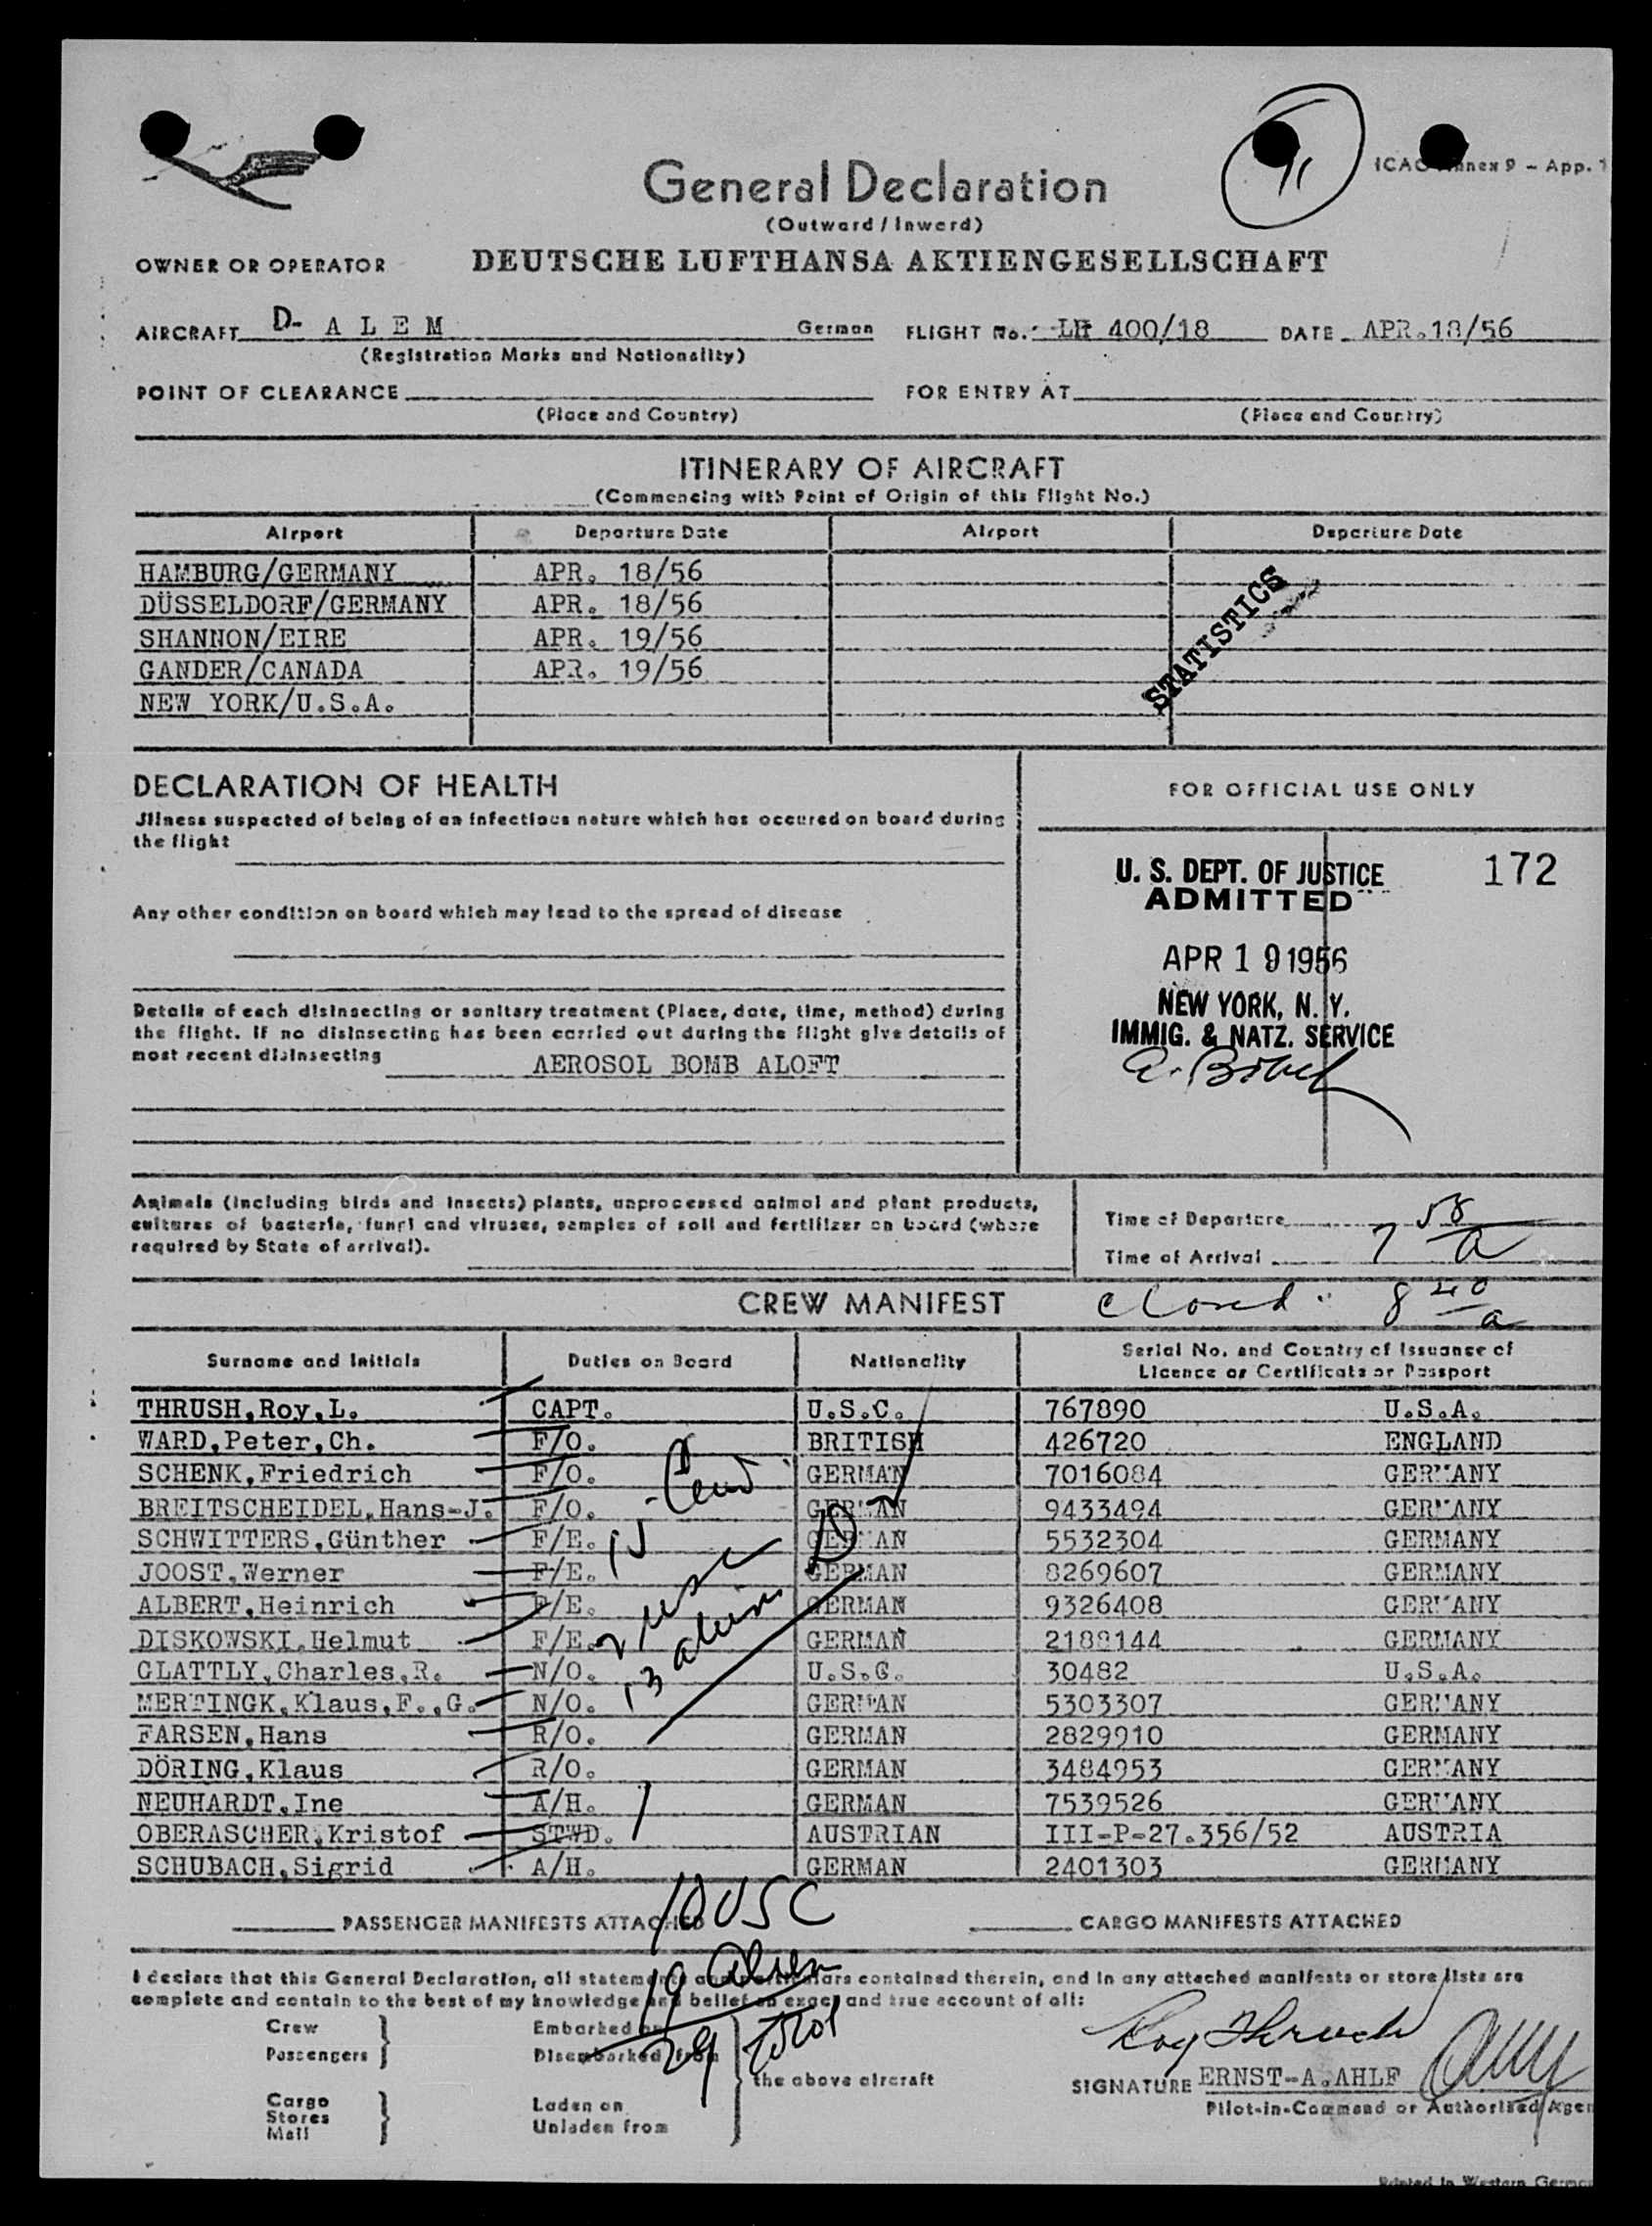 91
ICAO Annex 9 – App. 1
General Declaration
(Outward / Inward)
OWNER OR OPERATOR DEUTSCHE LUFTHANSA AKTIENGESELLSCHAFT
AIRCRAFT D- A L E M German FLIGHT No. LH 400/18 DATE APR.18/56
(Registration Marks and Nationality)
POINT OF CLEARANCE FOR ENTRY AT
(Place and Country) (Place and Country)
ITINERARY OF AIRCRAFT
(Commencing with Point of Origin of this Flight No.)
Airport Departure Date Airport Departure Date
HAMBURG/GERMANY APR. 18/56
DÜSSELDORF/GERMANY APR. 18/56
SHANNON/EIRE APR. 19/56
GANDER/CANADA APR. 19/56
NEW YORK/U.S.A.
STATISTICS
DECLARATION OF HEALTH
Jllness suspected of being of an infectious nature which has occured on board during
the flight
Any other condition on board which may lead to the spread of disease
Details of each disinsecting or sanitary treatment (Place, date, time, method) during
the flight. If no disinsecting has been carried out during the flight give details of
most recent disinsecting AEROSOL BOMB ALOFT
FOR OFFICIAL USE ONLY
U. S. DEPT. OF JUSTICE 172
ADMITTED
APR 19 1956
NEW YORK, N. Y.
IMMIG. & NATZ. SERVICE
Animals (including birds and insects) plants, unprocessed animal and plant products,
cultures of bacteria, fungi and viruses, samples of soil and fertilizer on board (where
required by State of arrival).
Time of Departure
Time of Arrival 7 58 a
CREW MANIFEST closed: 8 40 a
Surname and Initials Duties on Board Nationality Serial No. and Country of Issuance of
Licence or Certificate or Passport
THRUSH,Roy,L. CAPT. U.S.C. 767890 U.S.A.
WARD,Peter,Ch. F/O. BRITISH 426720 ENGLAND
SCHENK,Friedrich F/O. GERMAN 7016084 GERMANY
BREITSCHEIDEL,Hans-J. F/O. GERMAN 9433494 GERMANY
SCHWITTERS,Günther F/E. GERMAN 5532304 GERMANY
JOOST,Werner F/E. GERMAN 8269607 GERMANY
ALBERT,Heinrich F/E. GERMAN 9326408 GERMANY
DISKOWSKI,Helmut F/E. GERMAN 2188144 GERMANY
GLATTLY,Charles,R. N/O. U.S.C. 30482 U.S.A.
MERTINGK,Klaus,F.,G. N/O. GERMAN 5303307 GERMANY
FARSEN,Hans R/O. GERMAN 2829910 GERMANY
DÖRING,Klaus R/O. GERMAN 3484953 GERMANY
NEUHARDT,Ine A/H. GERMAN 7539526 GERMANY
OBERASCHER,Kristof STWD. AUSTRIAN III-P-27.356/52 AUSTRIA
SCHUBACH,Sigrid A/H. GERMAN 2401303 GERMANY
2 usc
13 aliens
10 USC
PASSENGER MANIFESTS ATTACHED CARGO MANIFESTS ATTACHED
19 Alien
I declare that this General Declaration, all statements and particulars contained therein, and in any attached manifests or store lists are
complete and contain to the best of my knowledge and belief an exact and true account of all:
29 Total
Crew Embarked on
Passengers Disembarked from
the above aircraft
Cargo Laden on
Stores Unladen from
Mail
Roy Thrush
SIGNATURE ERNST-A.AHLF
Pilot-in-Command or Authorised Agen
Printed in Western German